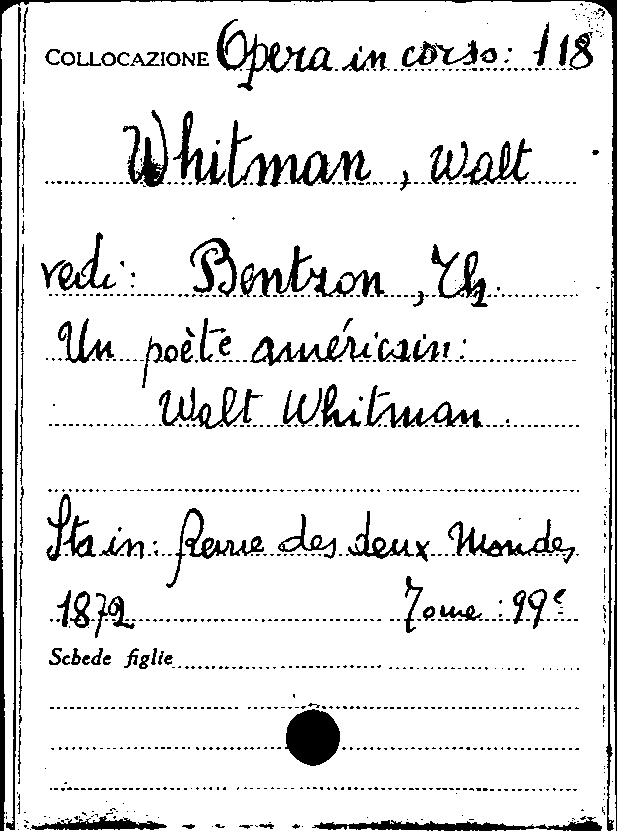 COLLOCAZIONE Opera in corso: 118
Whitman, Walt
vedi: Bentzon, Th.
Un poète américain:
Walt Whitman.
Sta in: Revue des deux Mondes,
1872 Tome: 99e
Schede figlie